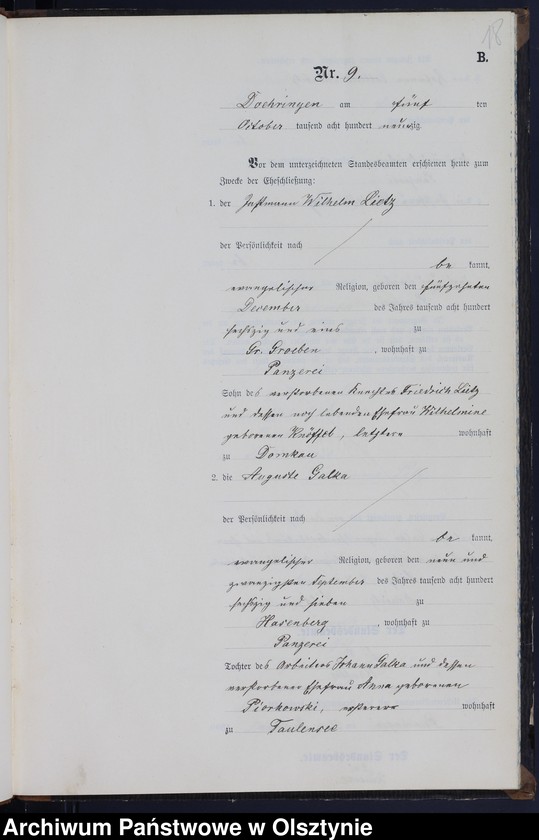 18
B.
Nr. 9.
Doehringen am fünf ten
October tausend acht hundert neunzig.
Vor dem unterzeichneten Standesbeamten erschienen heute zum
Zwecke der Eheschließung:
1. der Instmann Wilhelm Lietz
der Persönlichkeit nach
be kannt,
evangelischer Religion, geboren den fünfzehnten
December des Jahres tausend acht hundert
sechszig und eins zu
Gr. Groeben, wohnhaft zu
Panzerei
Sohn des verstorbenen Knechtes Friedrich Lietz
und dessen noch lebenden Ehefrau Wilhelmine
geborenen, letztere wohnhaft
zu Domkau
2. die Auguste Galka
der Persönlichkeit nach
be kannt,
evangelischer Religion, geboren den neun und
zwanzigsten September des Jahres tausend acht hundert
sechszig und sieben zu
Hasenberg, wohnhaft zu
Panzerei
Tochter des Arbeiters Johann Galka und dessen
verstorbener Ehefrau Anna geborenen
Piorkowski, ersterer wohnhaft
zu Taulensee
Archiwum Państwowe w Olsztynie